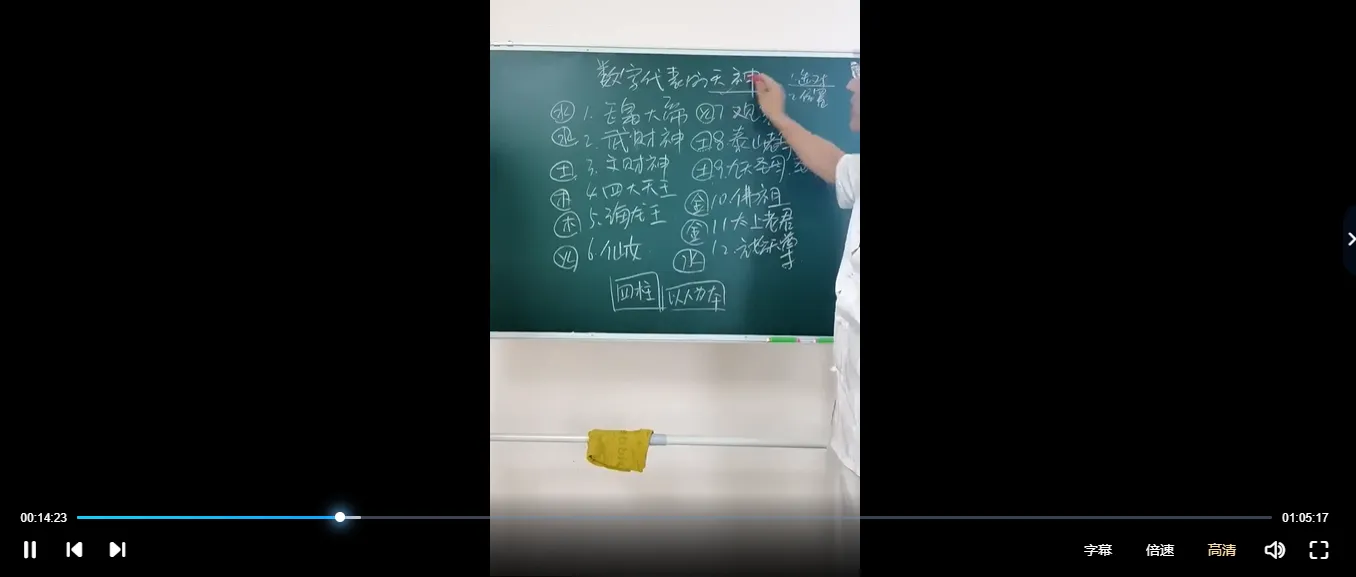 数字代表的天神
水 1. 玉皇大帝
水 2. 武财神
土 3. 文财神
木 4. 四大天王
木 5. 海龙王
火 6. 仙女
火 7. 观
土 8. 泰山老母
土 9. 九天圣母.
金 10. 佛祖
金 11. 太上老君
水 12. 元始天尊
四柱 以人为本
2 位置
00:14:23
01:05:17
字幕 倍速 高清